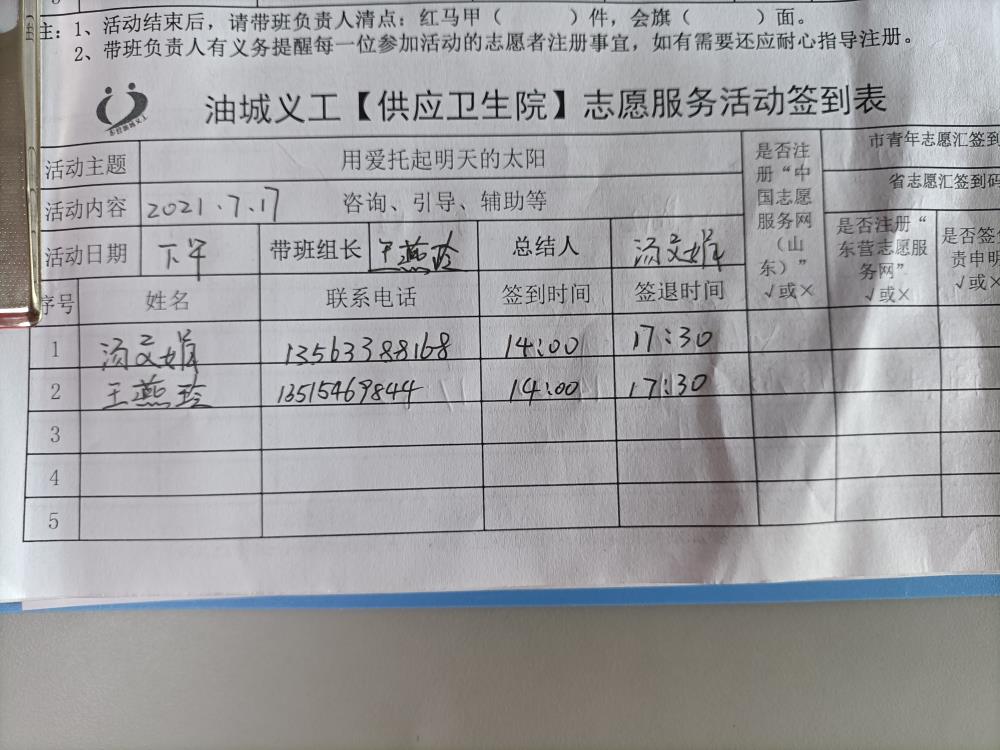 注：1、活动结束后，请带班负责人清点：红马甲（　　　）件，会旗（　　　）面。
2、带班负责人有义务提醒每一位参加活动的志愿者注册事宜，如有需要还应耐心指导注册。
油城义工【供应卫生院】志愿服务活动签到表
活动主题 用爱托起明天的太阳 是否注册“中国志愿服务网（山东）”√或× 市青年志愿汇签到
活动内容 2021.7.17 咨询、引导、辅助等 省志愿汇签到码
活动日期 下午 带班组长 王燕玲 总结人 汤文娟 是否注册“东营志愿服务网”√或× 是否签 责申明 √或×
序号 姓名 联系电话 签到时间 签退时间
1 汤文娟 13563388168 14:00 17:30
2 王燕玲 13515469844 14:00 17:30
3
4
5